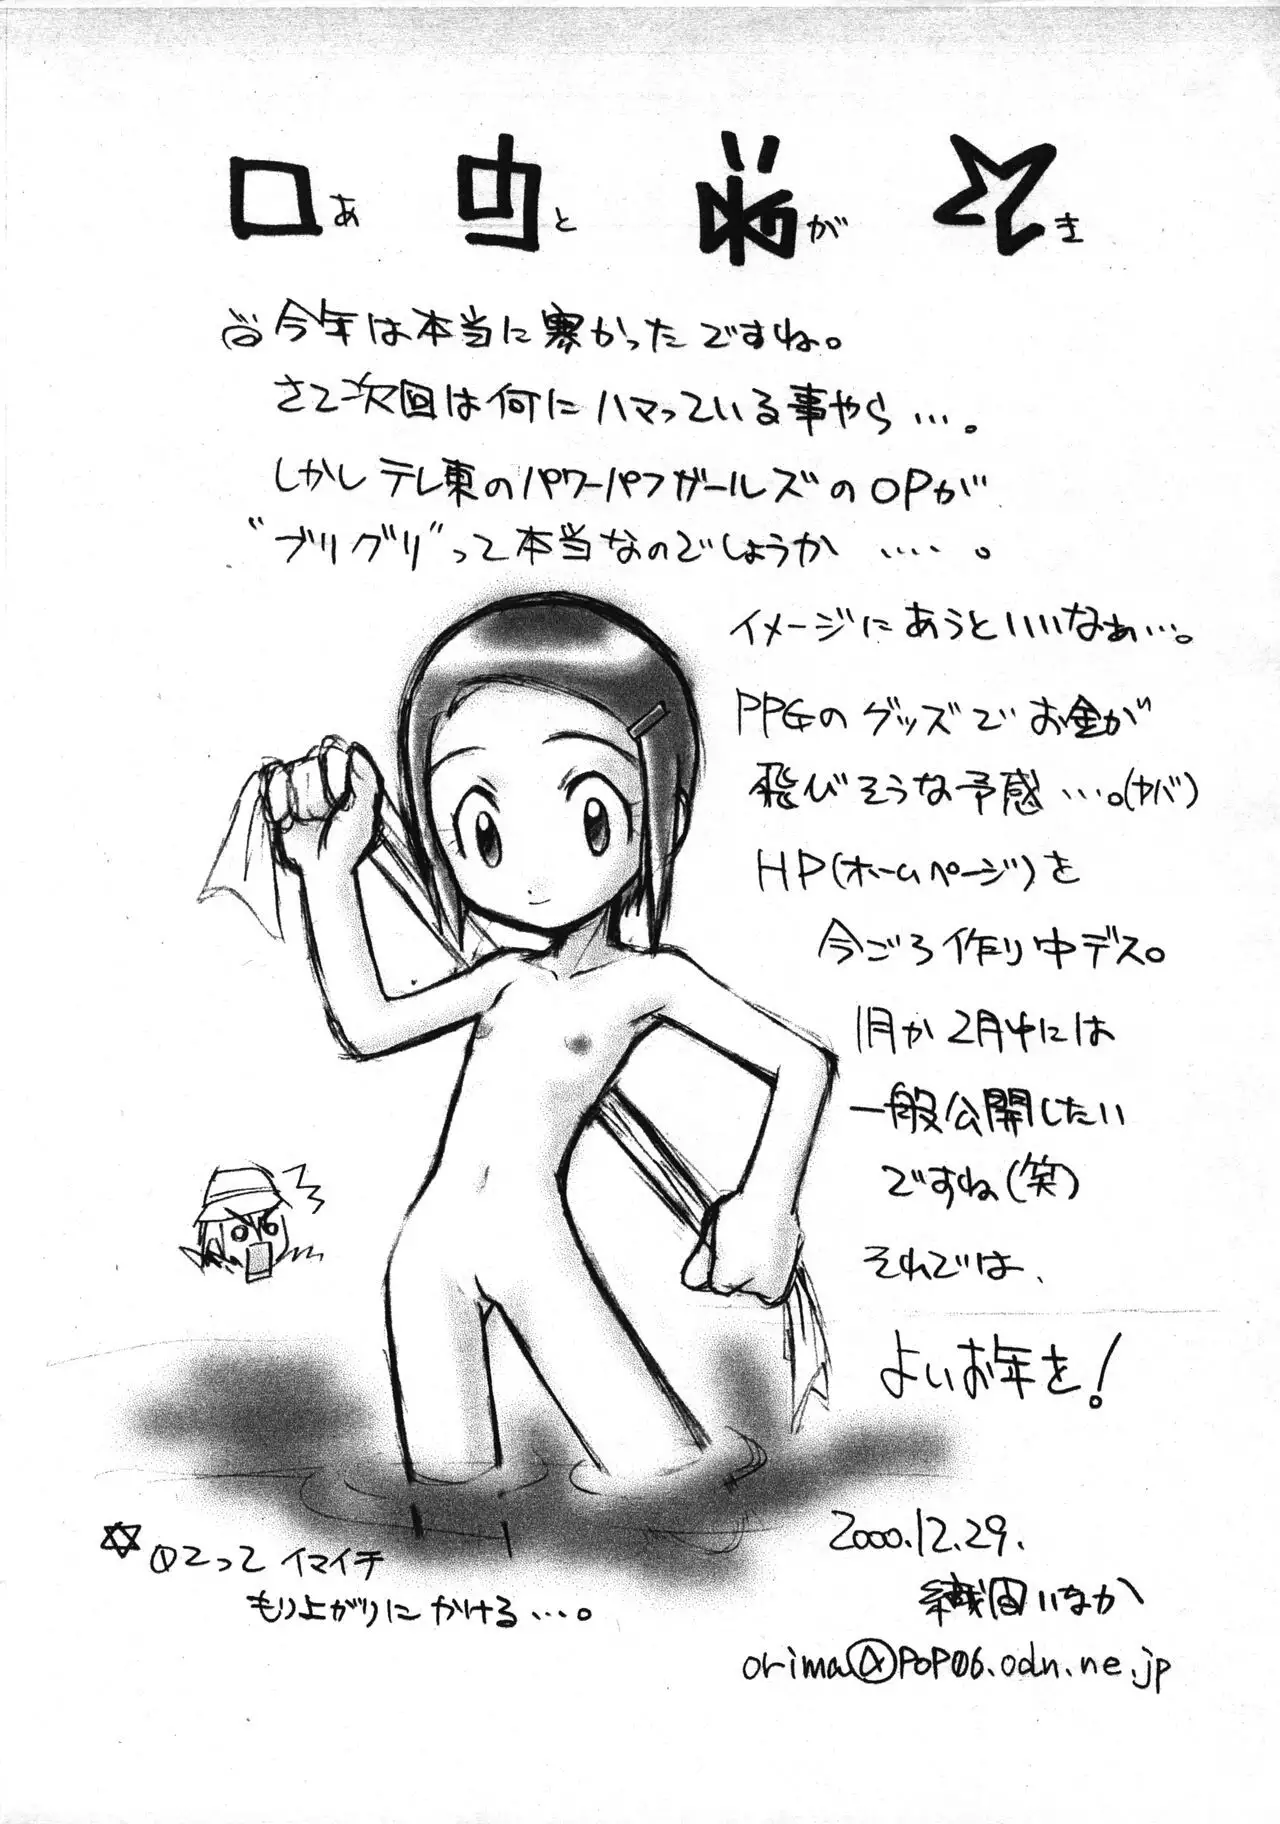 あとがき
今年は本当に寒かったですね。
さて次回は何にハマっている事やら…。
しかしテレ東のパワーパフガールズのOPが
"ブリグリ"って本当なのでしょうか ….。
イメージにあうといいなぁ…。
PPGのグッズでお金が
飛びそうな予感…。(ヤバ)
HP(ホームページ)を
今ごろ作り中デス。
1月か2月中には
一般公開したい
ですね(笑)
それでは、
よいお年を!
02って イマイチ
もり上がりにかける…。
2000.12.29.
織田いなか
orima@pop06.odn.ne.jp